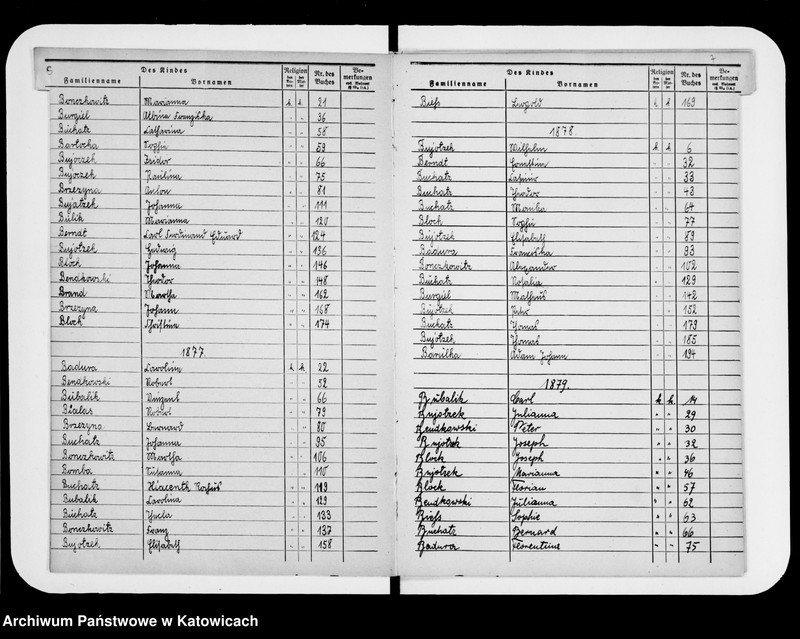 5
Des Kindes Religion Nr. des Buches Bemerkungen
Familienname Vornamen
Bonczkowitz Marianna k. k. 21
Burgiel Albina Franziska " " 36
Buchatz Catharina " " 58
Barlocha Sophie " " 59
Bujoczek Isidor " " 66
Bujoczek Paulina " " 75
Brzezyna Anton " " 81
Bujotzek Johanna " " 111
Bulik Marianna " " 120
Berndt Carl Ferdinand Eduard " " 124
Bujotzek Hedwig " " 136
Bloch Johanna " " 146
Bendkowski Theodor " " 148
Brand Martha " " 162
Brzezyna Johann " " 168
Bloch Christina " " 174
1877.
Badura Carolina k. k. 22
Bendkowski Robert " " 52
Bubalik Vinzent " " 66
Bialas Robert " " 79
Brzezyna Bernard " " 80
Buchatz Johanna " " 95
Bonczkowitz Martha " " 106
Bomba Susanna " " 110
Buchatz Hiacenth Rochus " " 119
Bubalik Carolina " " 129
Buchatz Thecla " " 133
Bonczkowitz Franz " " 137
Bujotzek Elisabeth " " 158
7
Des Kindes Religion Nr. des Buches Bemerkungen
Familienname Vornamen
Biess Leopold k. k. 169
1878.
Bujotzek Wilhelm k. k. 6
Berndt " " 32
Buchatz Casimir " " 33
Buchatz Theodor " " 43
Buchatz Monika " " 64
Bloch Sophie " " 77
Bujotzek Elisabeth " " 89
Badura Franciska " " 93
Bonczkowitz Alexander " " 102
Buchatz Rosalia " " 129
Burgiel Mathias " " 142
Bujotzek Peter " " 152
Buchatz Thomas " " 179
Bujotzek Thomas " " 185
Barulka Adam Johann " " 194
1879.
Bubalik Carl k. k. 14
Bujotzek Julianna " " 29
Bendkowski Peter " " 30
Bujotzek Joseph " " 32
Block Joseph " " 36
Bujotzek Marianna " " 46
Block Florian " " 57
Bendkowski Julianna " " 62
Biess Sophie " " 63
Buchatz Bernard " " 66
Badura Florentine " " 75
Archiwum Państwowe w Katowicach